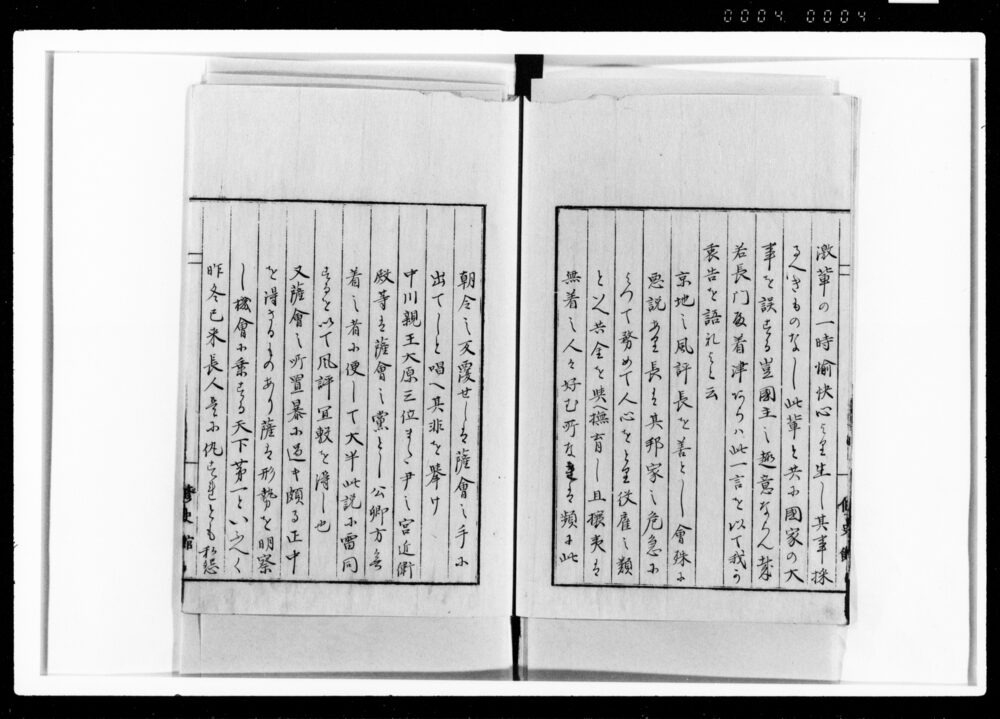 0004 0004
激輩の一時愉快心より生し其事採
るへきものなし此輩と共に國家の大
事を誤する豈國主之趣意ならん哉
若長門殿着津あらハ此一言を以て我
哀告を語れよと云
京地之風評長を善とし會殊に
悪説あり長も其邦家之危急に
よつて務めて人心をとり彼雇之類
と人共金を與へ撫育し且攘夷を
無着之人々好む所故是を頻に此
朝令之反覆せしは薩會之手に
出てしと唱へ其非を挙け
中川親王大原三位また尹之宮近衛
殿等は薩會之黨とし公卿方無
着之者に便して大半此説に雷同
するを以て風評宜敷を得し也
又薩會之所置暴に過き頗る正中
を得さるものあり薩は形勢を明察
し機會に乗する天下第一といふへく
昨冬已来長人是に仇するとも私怨
修史館